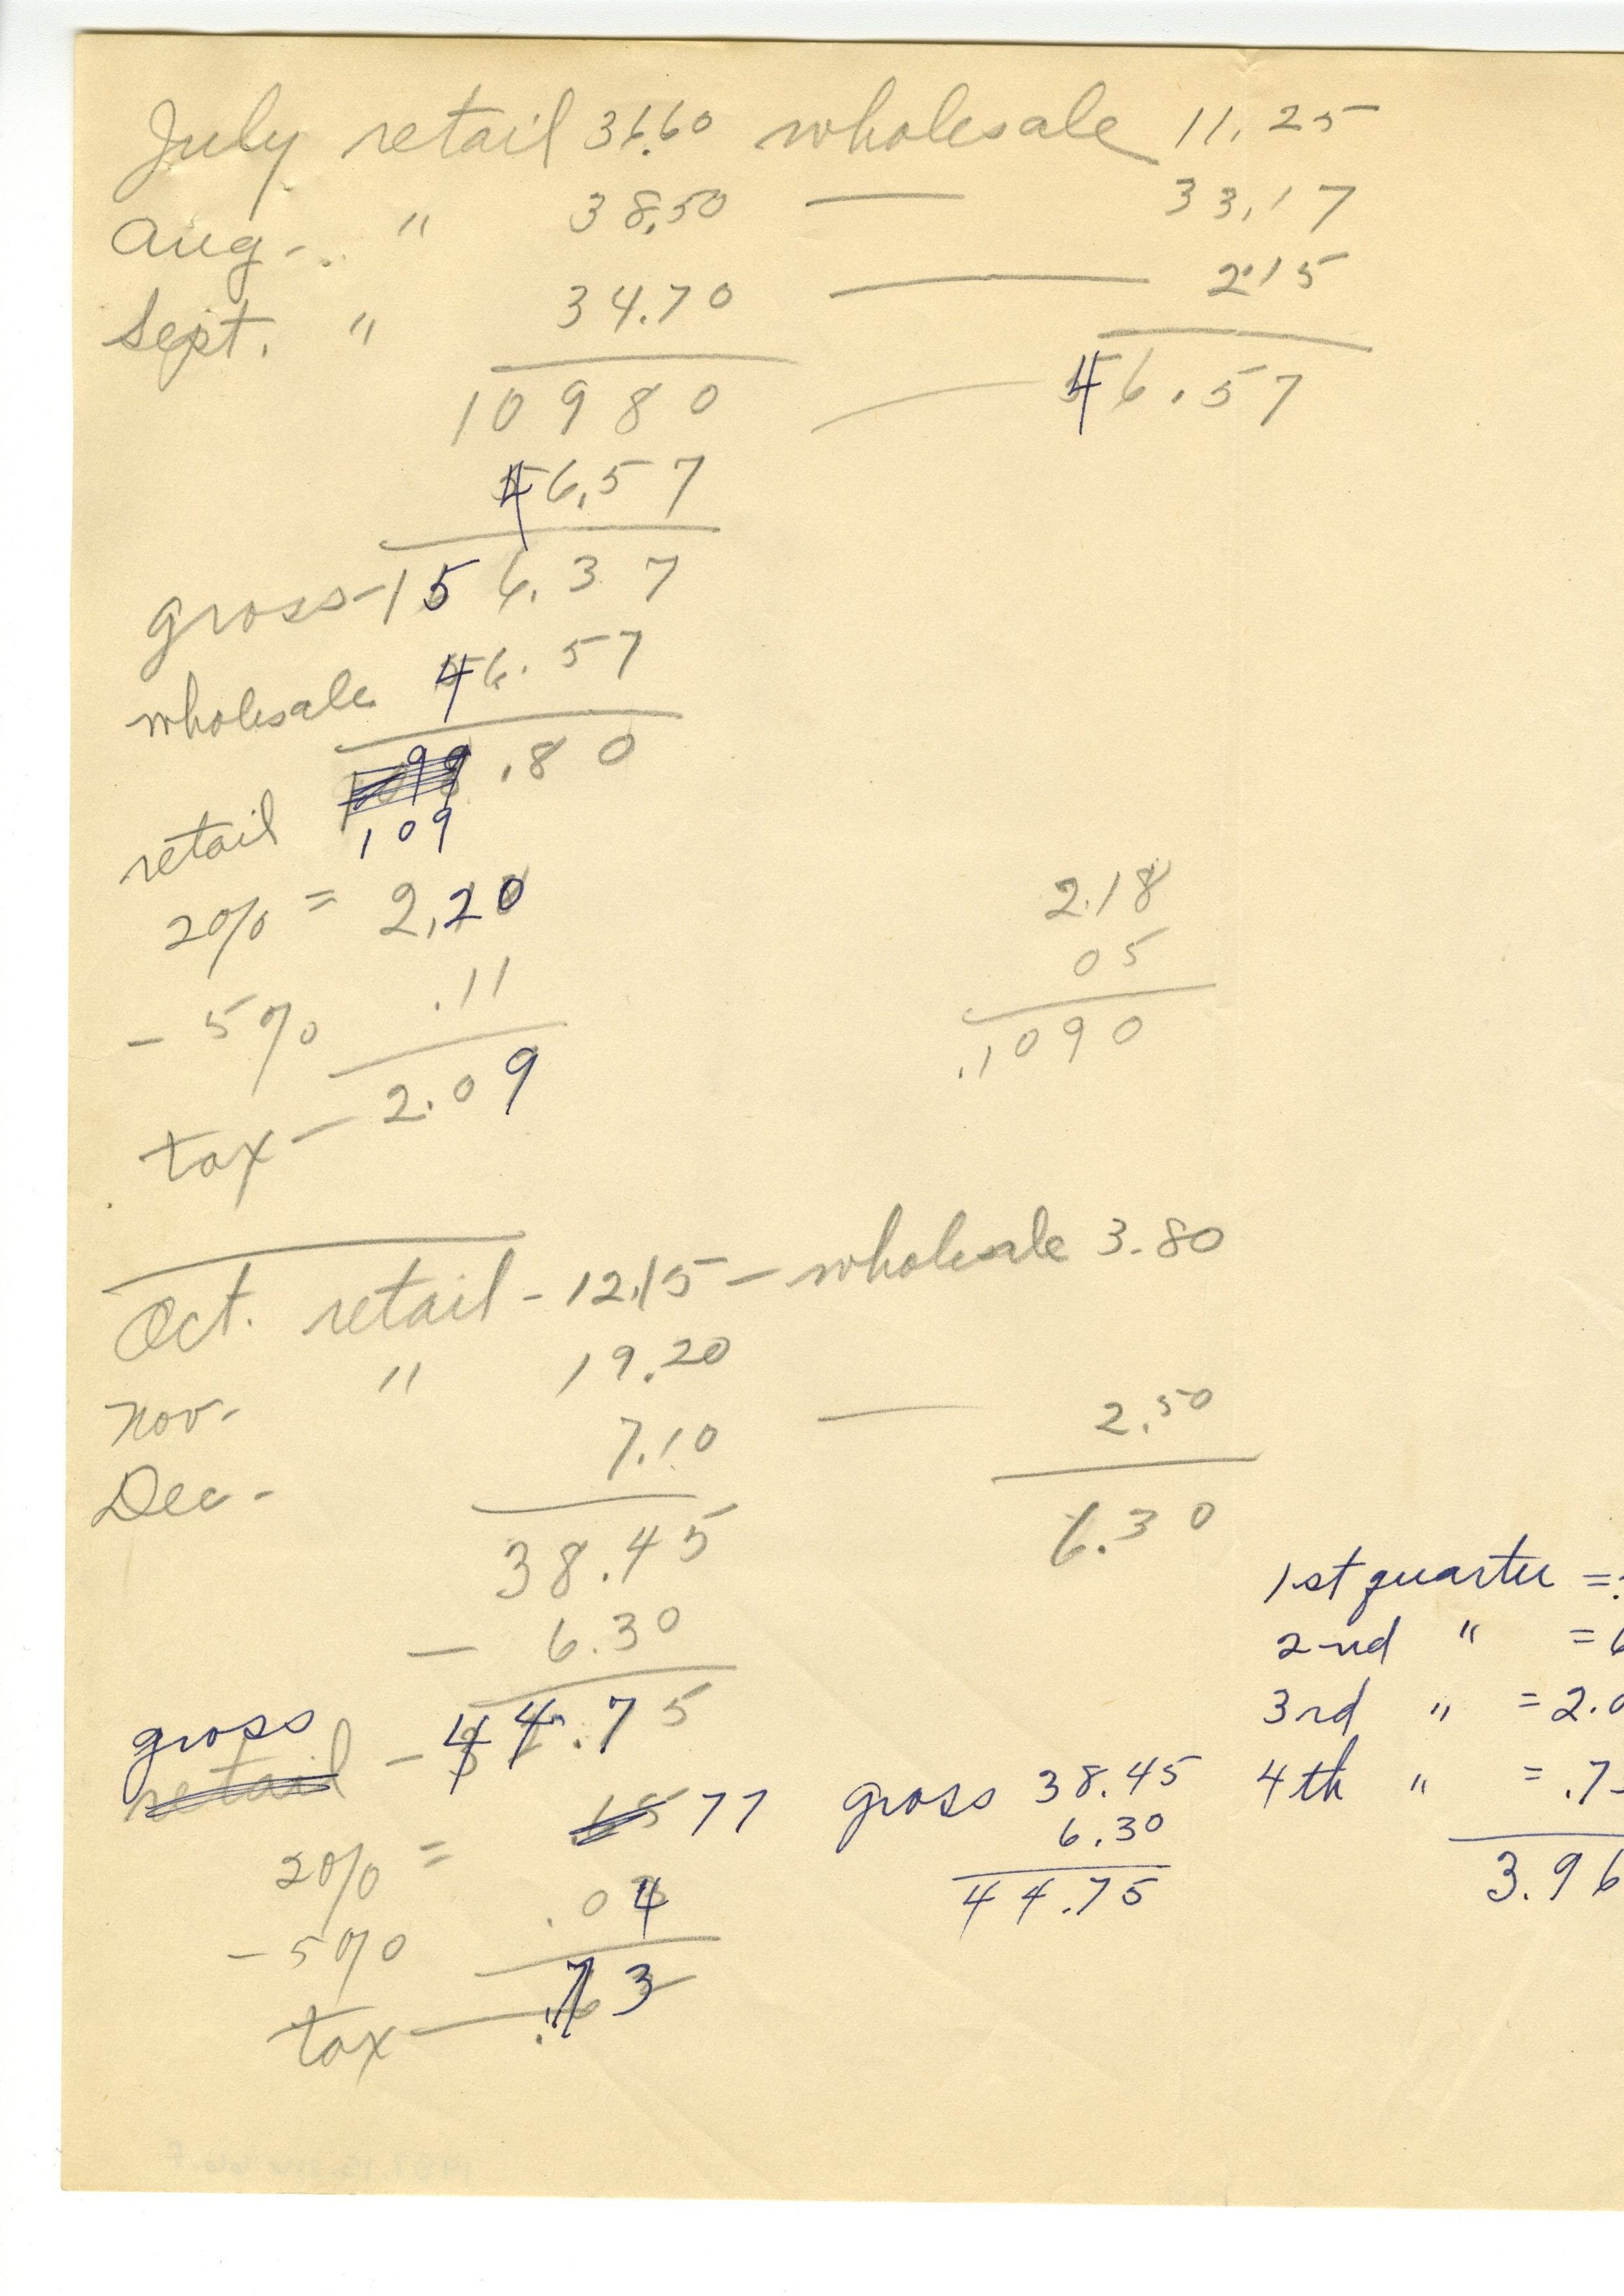 July retail 36.60 wholesale 11.25
Aug - " 38.50 — 33.17
Sept. " 34.70 — 2.15
10980 — 46.57
46.57
gross - 156.37
wholesale 46.57
retail .80
109
2% = 2.20
2.18
- 5% .11
05
.1090
tax - 2.09
Oct. retail - 12.15 - wholesale 3.80
Nov - " 19.20
Dec - 7.10 — 2.50
38.45
6.30
- 6.30
gross
retail - 44.75
2% = 65 77
- 5% .04
tax — .73
gross 38.45
6.30
44.75
1st quarter =
2nd " = 6
3rd " = 2.0
4th " = .7
3.96